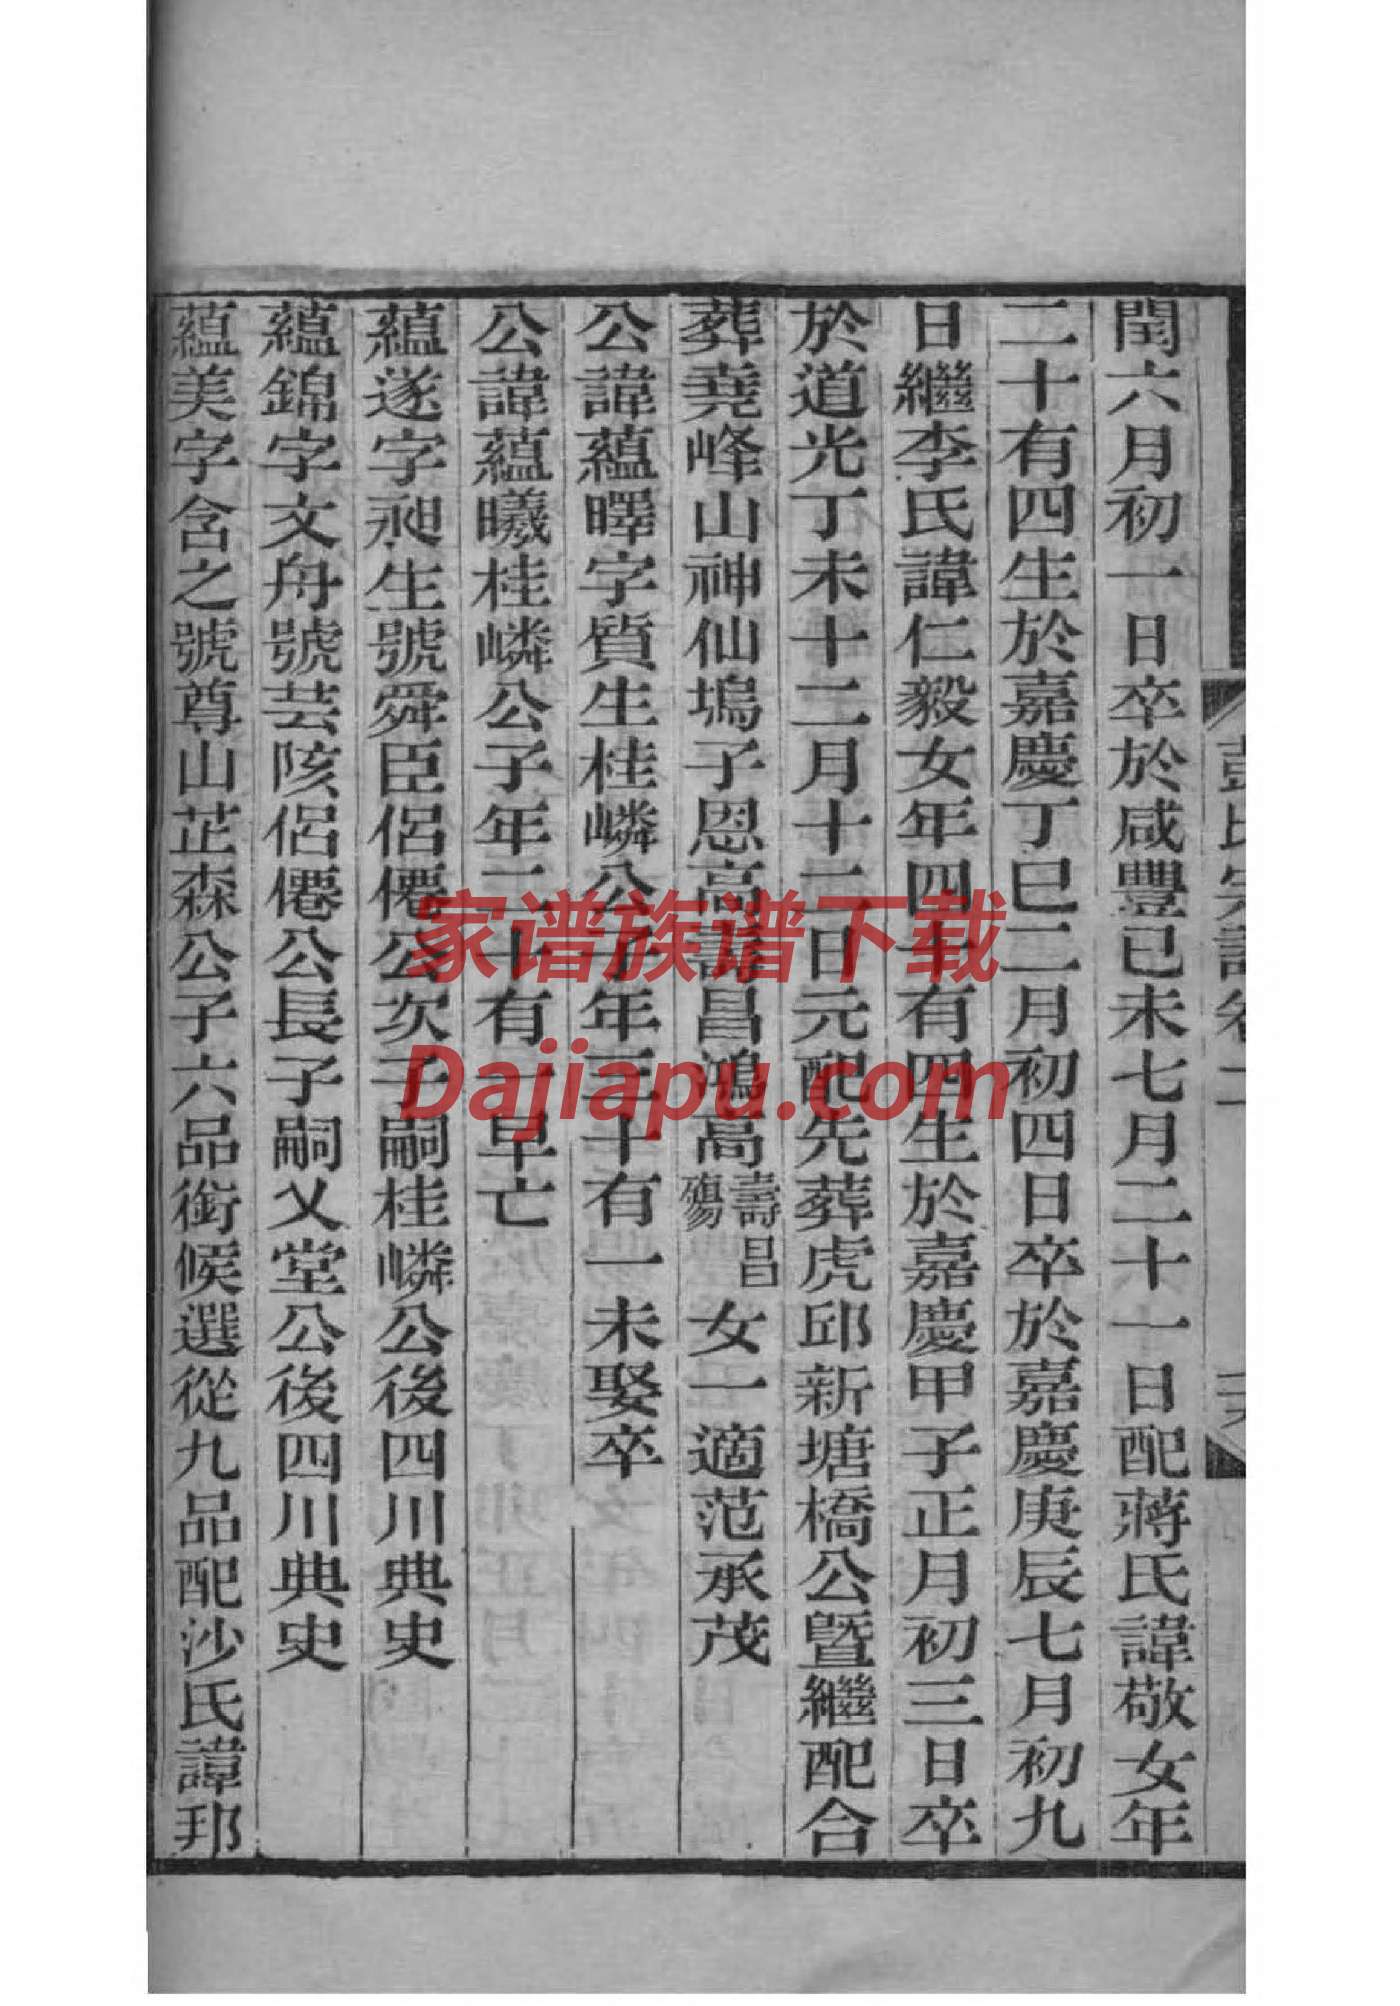 閏六月初一日卒於咸豐已未七月二十一日配蔣氏諱敬女年
二十有四生於嘉慶丁巳二月初四日卒於嘉慶庚辰七月初九
日繼李氏諱仁毅女年四十有四生於嘉慶甲子正月初三日卒
於道光丁未十二月十二日元配先葬虎邱新塘橋公暨繼配合
葬堯峰山神仙塢子恩高壽昌鴻高壽昌殤女一適范承茂
公諱蘊曎字質生桂嶙公子年三十有一未娶卒
公諱蘊曦桂嶙公子年二十有一早亡
蘊遂字昶生號舜臣侶僊公次子嗣桂嶙公後四川典史
蘊錦字文舟號芸陔侶僊公長子嗣乂堂公後四川典史
蘊美字含之號尊山芷森公子六品銜候選從九品配沙氏諱邦
彭氏宗譜卷二
家谱族谱下载
Dajiapu.com